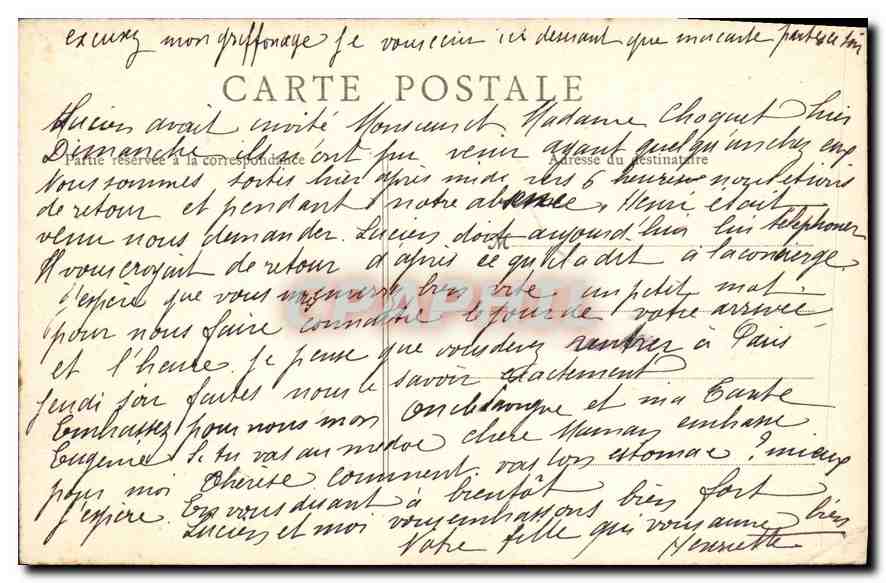 excusez mon griffonage je vous écris ici dessus ant que ma carte parte ce soir
CARTE POSTALE
Lucien avait invité Monsieur et Madame Choquet hier
Dimanche ils n'ont pu venir ayant quelqu'un chez eux
Partie réservée à la correspondance
Adresse du destinataire
Nous sommes sortis hier après midi vers 6 heures nous étions
de retour et pendant notre absence, Henri était
venu nous demander. Lucien doit aujourd'hui lui téléphoner
M
Il vous croyait de retour d'après ce qu'il a dit à la concierge.
J'espère que vous m'enverrez bien vite un petit mot
pour nous faire connaître le jour de votre arrivée
et l'heure. Je pense que vous devez rentrer à Paris
Jeudi soir faites nous le savoir exactement
Embrassez pour nous mon oncle et ma Tante
Eugenie Si tu vas au medoc chère Maman embrasse
pour moi Thérèse comment vas ton estomac? mieux
j'espère. En vous disant à bientôt
Lucien et moi vous embrassons bien fort
Votre fille qui vous aime bien
Henriette